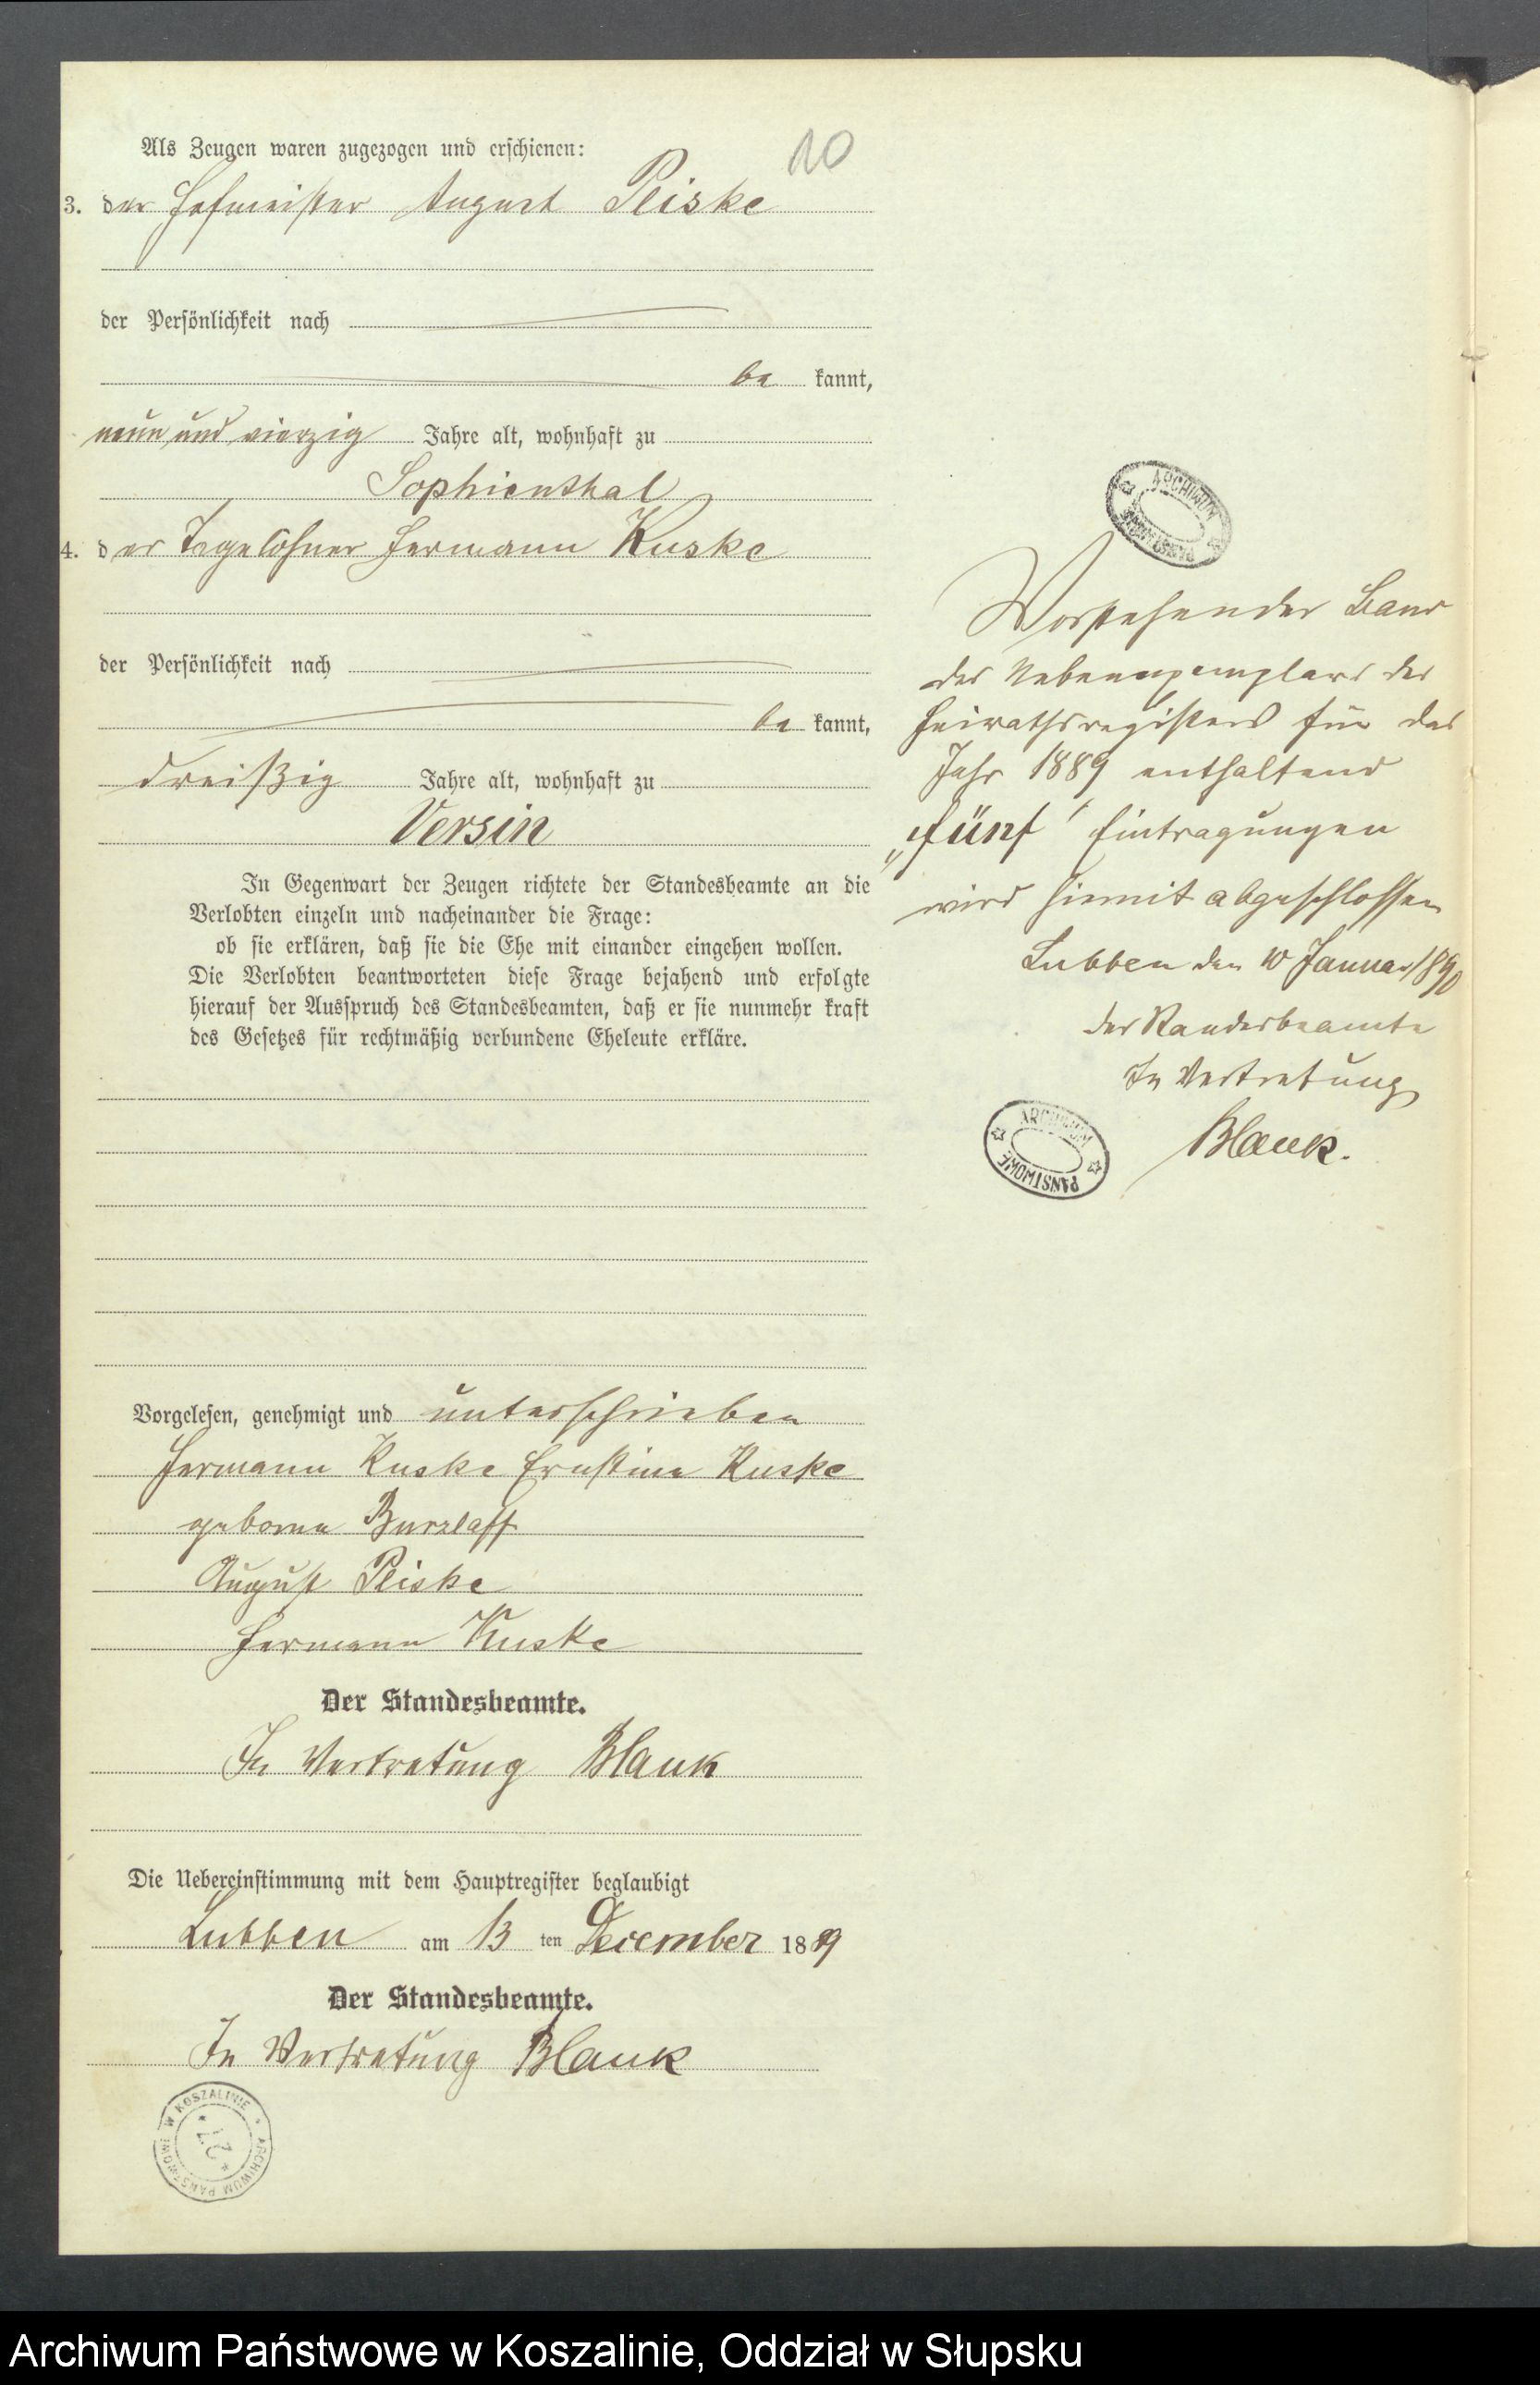 10
Als Zeugen waren zugezogen und erschienen:
3. der Hofmeister August Pliske
der Persönlichkeit nach
be kannt,
neun und vierzig Jahre alt, wohnhaft zu
Sophienthal
4. der Tagelöhner Hermann Kuske
der Persönlichkeit nach
be kannt,
dreißig Jahre alt, wohnhaft zu
Versin
In Gegenwart der Zeugen richtete der Standesbeamte an die
Verlobten einzeln und nacheinander die Frage:
ob sie erklären, daß sie die Ehe mit einander eingehen wollen.
Die Verlobten beantworteten diese Frage bejahend und erfolgte
hierauf der Ausspruch des Standesbeamten, daß er sie nunmehr kraft
des Gesetzes für rechtmäßig verbundene Eheleute erkläre.
Vorgelesen, genehmigt und unterschrieben
Hermann Kuske Ernstine Kuske
geborne Burzlaff
August Pliske
Hermann Kuske
Der Standesbeamte.
In Vertretung Blank
Die Uebereinstimmung mit dem Hauptregister beglaubigt
Lubben am 13 ten December 1889
Der Standesbeamte.
In Vertretung Blank
ARCHIWUM PAŃSTWOWE W KOSZALINIE
ARCHIWUM PAŃSTWOWE
Vorstehender Band
des Nebenexemplars des
Heirathsregisters für das
Jahr 1889 enthaltend
„fünf" Eintragungen
wird hiermit abgeschlossen
Lubben den 10 Januar 1890
der Standesbeamte
In Vertretung
Blank.
ARCHIWUM PAŃSTWOWE
Archiwum Państwowe w Koszalinie, Oddział w Słupsku